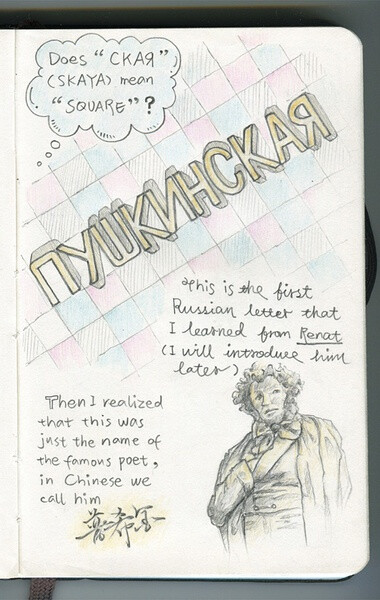 Does "СКАЯ"
(SKAYA) mean
"SQUARE"?
ПУШКИНСКАЯ
This is the first
Russian letter that
I learned from Renat
(I will introduce him
later)
Then I realized
that this was
just the name of
the famous poet,
in Chinese we
call him
普希金